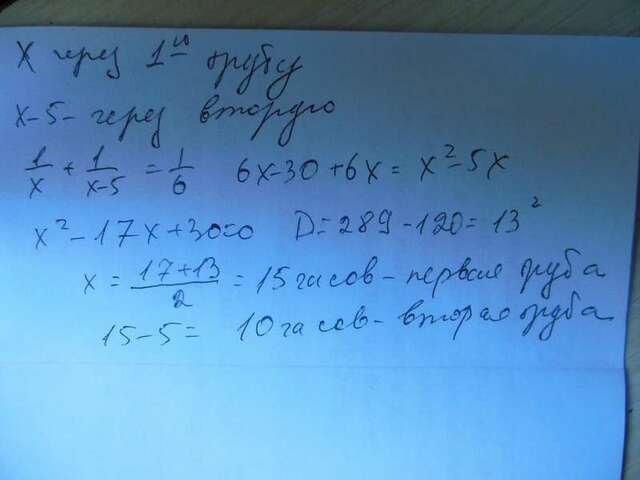 X через 1ую трубу
x-5- через вторую
1/x + 1/x-5 = 1/6 6x-30+6x = x²-5x
x²-17x+30=0 D=289-120=13²
x = 17+13/2 = 15 часов - первая труба
15-5= 10 часов - вторая труба